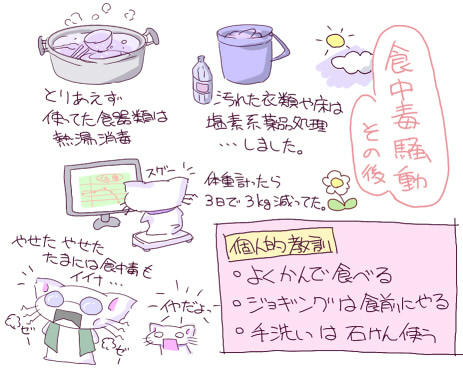 食中毒騒動
その後
とりあえず
使ってた食器類は
熱湯消毒
汚れた衣類や床は
塩素系薬品処理
…しました。
スゲー
体重計ったら
3日で3kg減ってた。
やせた やせた
たまには食中毒も
イイナ…
ゼー
ゼー
イヤだよっ
個人的教訓
・よくかんで食べる
・ジョギングは食前にやる
・手洗いは石けん使う